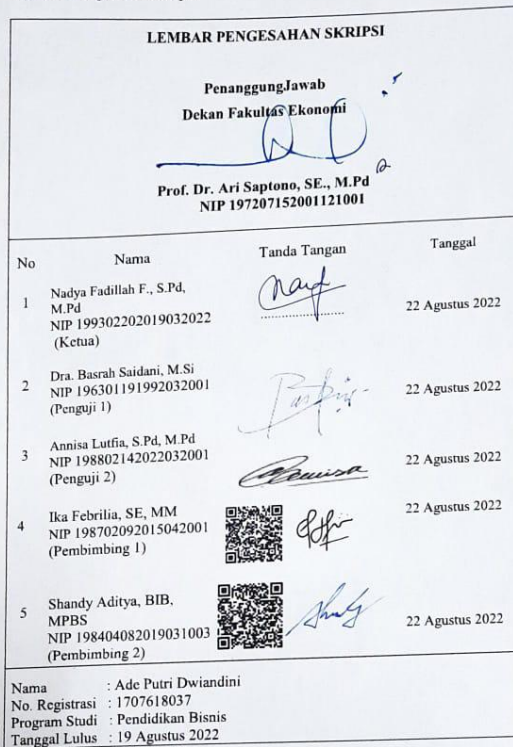 LEMBAR PENGESAHAN SKRIPSI
PenanggungJawab
Dekan Fakultas Ekonomi
Prof. Dr. Ari Saptono, SE., M.Pd
NIP 197207152001121001
No Nama Tanda Tangan Tanggal
1 Nadya Fadillah F., S.Pd, M.Pd
NIP 199302202019032022
(Ketua)
22 Agustus 2022
2 Dra. Basrah Saidani, M.Si
NIP 196301191992032001
(Penguji 1)
22 Agustus 2022
3 Annisa Lutfia, S.Pd, M.Pd
NIP 198802142022032001
(Penguji 2)
22 Agustus 2022
4 Ika Febrilia, SE, MM
NIP 198702092015042001
(Pembimbing 1)
22 Agustus 2022
5 Shandy Aditya, BIB,
MPBS
NIP 198404082019031003
(Pembimbing 2)
22 Agustus 2022
Nama : Ade Putri Dwiandini
No. Registrasi : 1707618037
Program Studi : Pendidikan Bisnis
Tanggal Lulus : 19 Agustus 2022